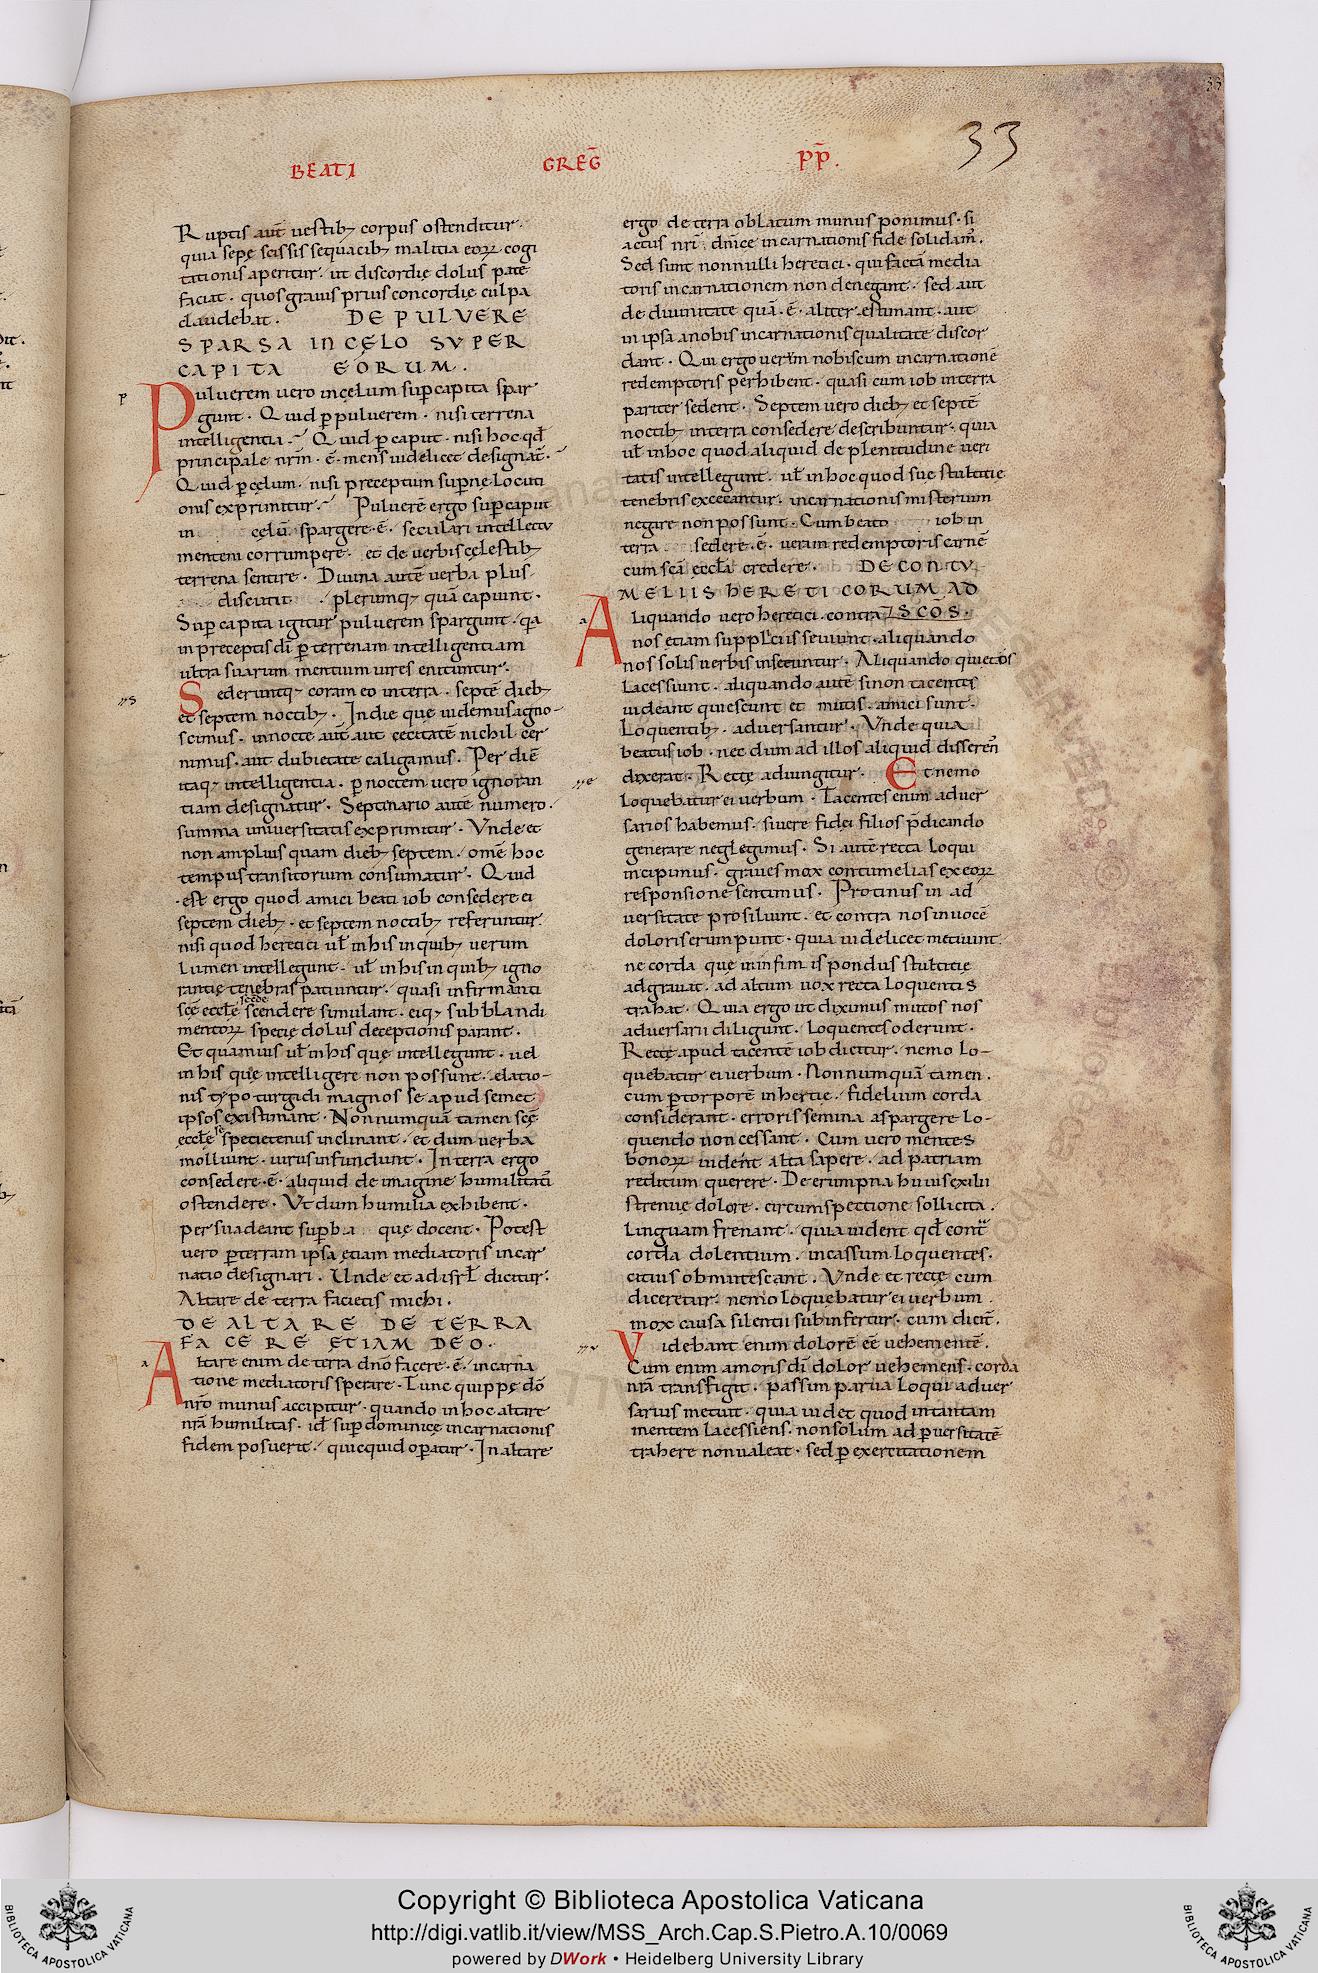 33
BEATI GREḠ PP̄.
33
Ruptis aut̄ uestib; corpus ostenditur.
quia sepę scissis sequacib; malitia eoꝝ cogi
tationis aperitur. ut discordię dolus pate
faciat. quos grauius prius concordię culpa
claudebat. DE PULVERE
SPARSA IN CĘLO SVPER
CAPITA EORUM.
p
Puluerem uero in cęlum sup̱ capita spar
gunt. Quid p̱ puluerem. nisi terrena
intelligentia. Quid p̱ caput. nisi hoc qđ
principale nrm̄. ē. mens uidelicet designat̄.
Quid p̱ cęlum. nisi preceptum sup̱nę locuti
onis exprimitur. Puluerē ergo sup̱ caput
in cęlū. spargere. ē. seculari intellectu
mentem corrumpere. et de uerbis cęlestib;
terrena sentire. Diuina autē uerba plus
discutit plerumq; quā capiunt.
Sup̱ capita igitur puluerem spargunt. q̄a
in preceptis dī p̱ terrenam intelligentiam
ultra suarum mentium uires enituntur.
s
Sederuntq; coram eo in terra. septē dieb;
et septem noctib;. In die quę uidemus agno-
scimus. in nocte aut̄ aut cęcitatē nichil cer
nimus. aut dubietate caligamus. Per diē
itaq; intelligentia. p̱ noctem uero ignoran
tiam designatur. Septenario autē numero.
summa uniuersitatis exprimitur. Vnde et
non amplius quam dieb; septem. omē hoc
tempus transitorium consumatur. Quid
est ergo quod amici beati iob consedere ei
septem dieb;. et septem noctib; referuntur.
nisi quod heretici ut̄ in his in quib; uerum
lumen intellegunt. ut̄ in his in quib; igno
rantię tenebras patiuntur. quasi infirmanti
scę eccłę scendere simulant. eiq; sub blandi
mentoꝝ specię dolus deceptionis parant.
Et quamuis ut̄ in his quę intellegunt. uel
in his quę intelligere non possunt. elatio-
nis typo turgidi magnos se apud semet
ipsos existimant. Nonnumquā tamen scę
eccłę se specietenus inclinant. et dum uerba
molliunt. uirus infundunt. In terra ergo
consedere. ē. aliquid de imagine humilitati
ostendere. Vt dum humilia exhibent.
persuadeant sup̱ba quę docent. Potest
uero p̱ terram ipsa ętiam mediatoris incar
natio designari. Unde et ad isrł dicitur.
Altare de terra facietis michi.
DE ALTARE DE TERRA
FACERE ĘTIAM DEO.
a
Altare enim de terra dn̄o facere. ē. incarna
tione mediatoris sperare. Tunc quippę dō
nr̄o munus accipitur. quando in hoc altare
nrā humilitas. id̄ sup̱ dominicę incarnationis
fidem posuerit. quicquid op̱atur. In altare
ergo de terra oblatum munus ponimus. si
actus nr̄i dn̄icę incarnationis fide solidam̄.
Sed sunt nonnulli heretici. qui factā media
toris incarnationem non denegant. sed aut
de diuinitate quā. ē. aliter estimant. aut
in ipsa a nobis incarnationis qualitate discor
dant. Qui ergo uerum nobiscum incarnationē
redemptoris perhibent. quasi cum iob in terra
pariter sedent. Septem uero dieb; et septē
noctib; in terra consedere describuntur. quia
ut̄ in hoc quod aliquid de plenitudine ueri
tatis intellegunt. ut̄ in hoc quod suę stultitię
tenebris excecantur. incarnationis misterium
negare non possunt. Cum beato iob in
terra sedere. ē. ueram redemptoris carnē
cum scā eccłā credere. DE CONTV
MELIIS HERETICORUM AD
SCŌS.
a
Aliquando uero heretici. contra
nos etiam suppliciis seuiunt. aliquando
nos solis uerbis insecuntur. Aliquando quietos
lacessiunt. aliquando autē si non tacentes
uideant quiescunt et mutis. amici sunt.
loquentib;. aduersantur. Vnde quia
beatus iob. nec dum ad illos aliquid disseren̄
dixerat. Recte adiungitur. Et nemo
e
loquebatur ei uerbum. Tacentes enim aduer
sarios habemus. si uere fidei filios p̄dicando
generare neglegimus. Si autē recta loqui
incipimus. graues mox contumelias ex eoꝝ
responsione sentimus. Protinus in ad
uersitate prosiliunt. et contra nos in uocē
doloris erumpunt. quia uidelicet metuunt.
ne corda quę in infimis pondus stultitię
adgrauat. ad altum uox recta loquentis
trahat. Quia ergo ut diximus mutos nos
aduersarii diligunt. loquentes oderunt.
Rectę apud tacentē iob dicitur. nemo lo-
quebatur ei uerbum. Nonnumquā tamen.
cum p̱ torporē inhertię. fidelium corda
considerant. erroris semina aspargere lo-
quendo non cessant. Cum uero mentes
bonoꝝ uident alta sapere. ad patriam
reditum querere. De erumpna huius exilii
strenue dolore. circumspectione sollicita.
linguam frenant. quia uident qđ cont̄
corda dolentium. incassum loquentes.
citius obmutescant. Vnde et rectę cum
diceretur. nemo loquebatur ei uerbum.
mox causa silentii subinfertur. cum dicit̄.
v
Videbant enim dolorē eē uehementē.
Cum enim amoris dī dolor uehemens. corda
nrā transfigit. passim parua loqui aduer
sarius metuit. quia uidet quod intantam
mentem lacessiens. non solum ad p̱uersitatē
trahere non ualeat. sed p̱ exercitationem
Copyright © Biblioteca Apostolica Vaticana
http://digi.vatlib.it/view/MSS_Arch.Cap.S.Pietro.A.10/0069
powered by DWork • Heidelberg University Library
BIBLIOTECA APOSTOLICA VATICANA
BIBLIOTECA APOSTOLICA VATICANA